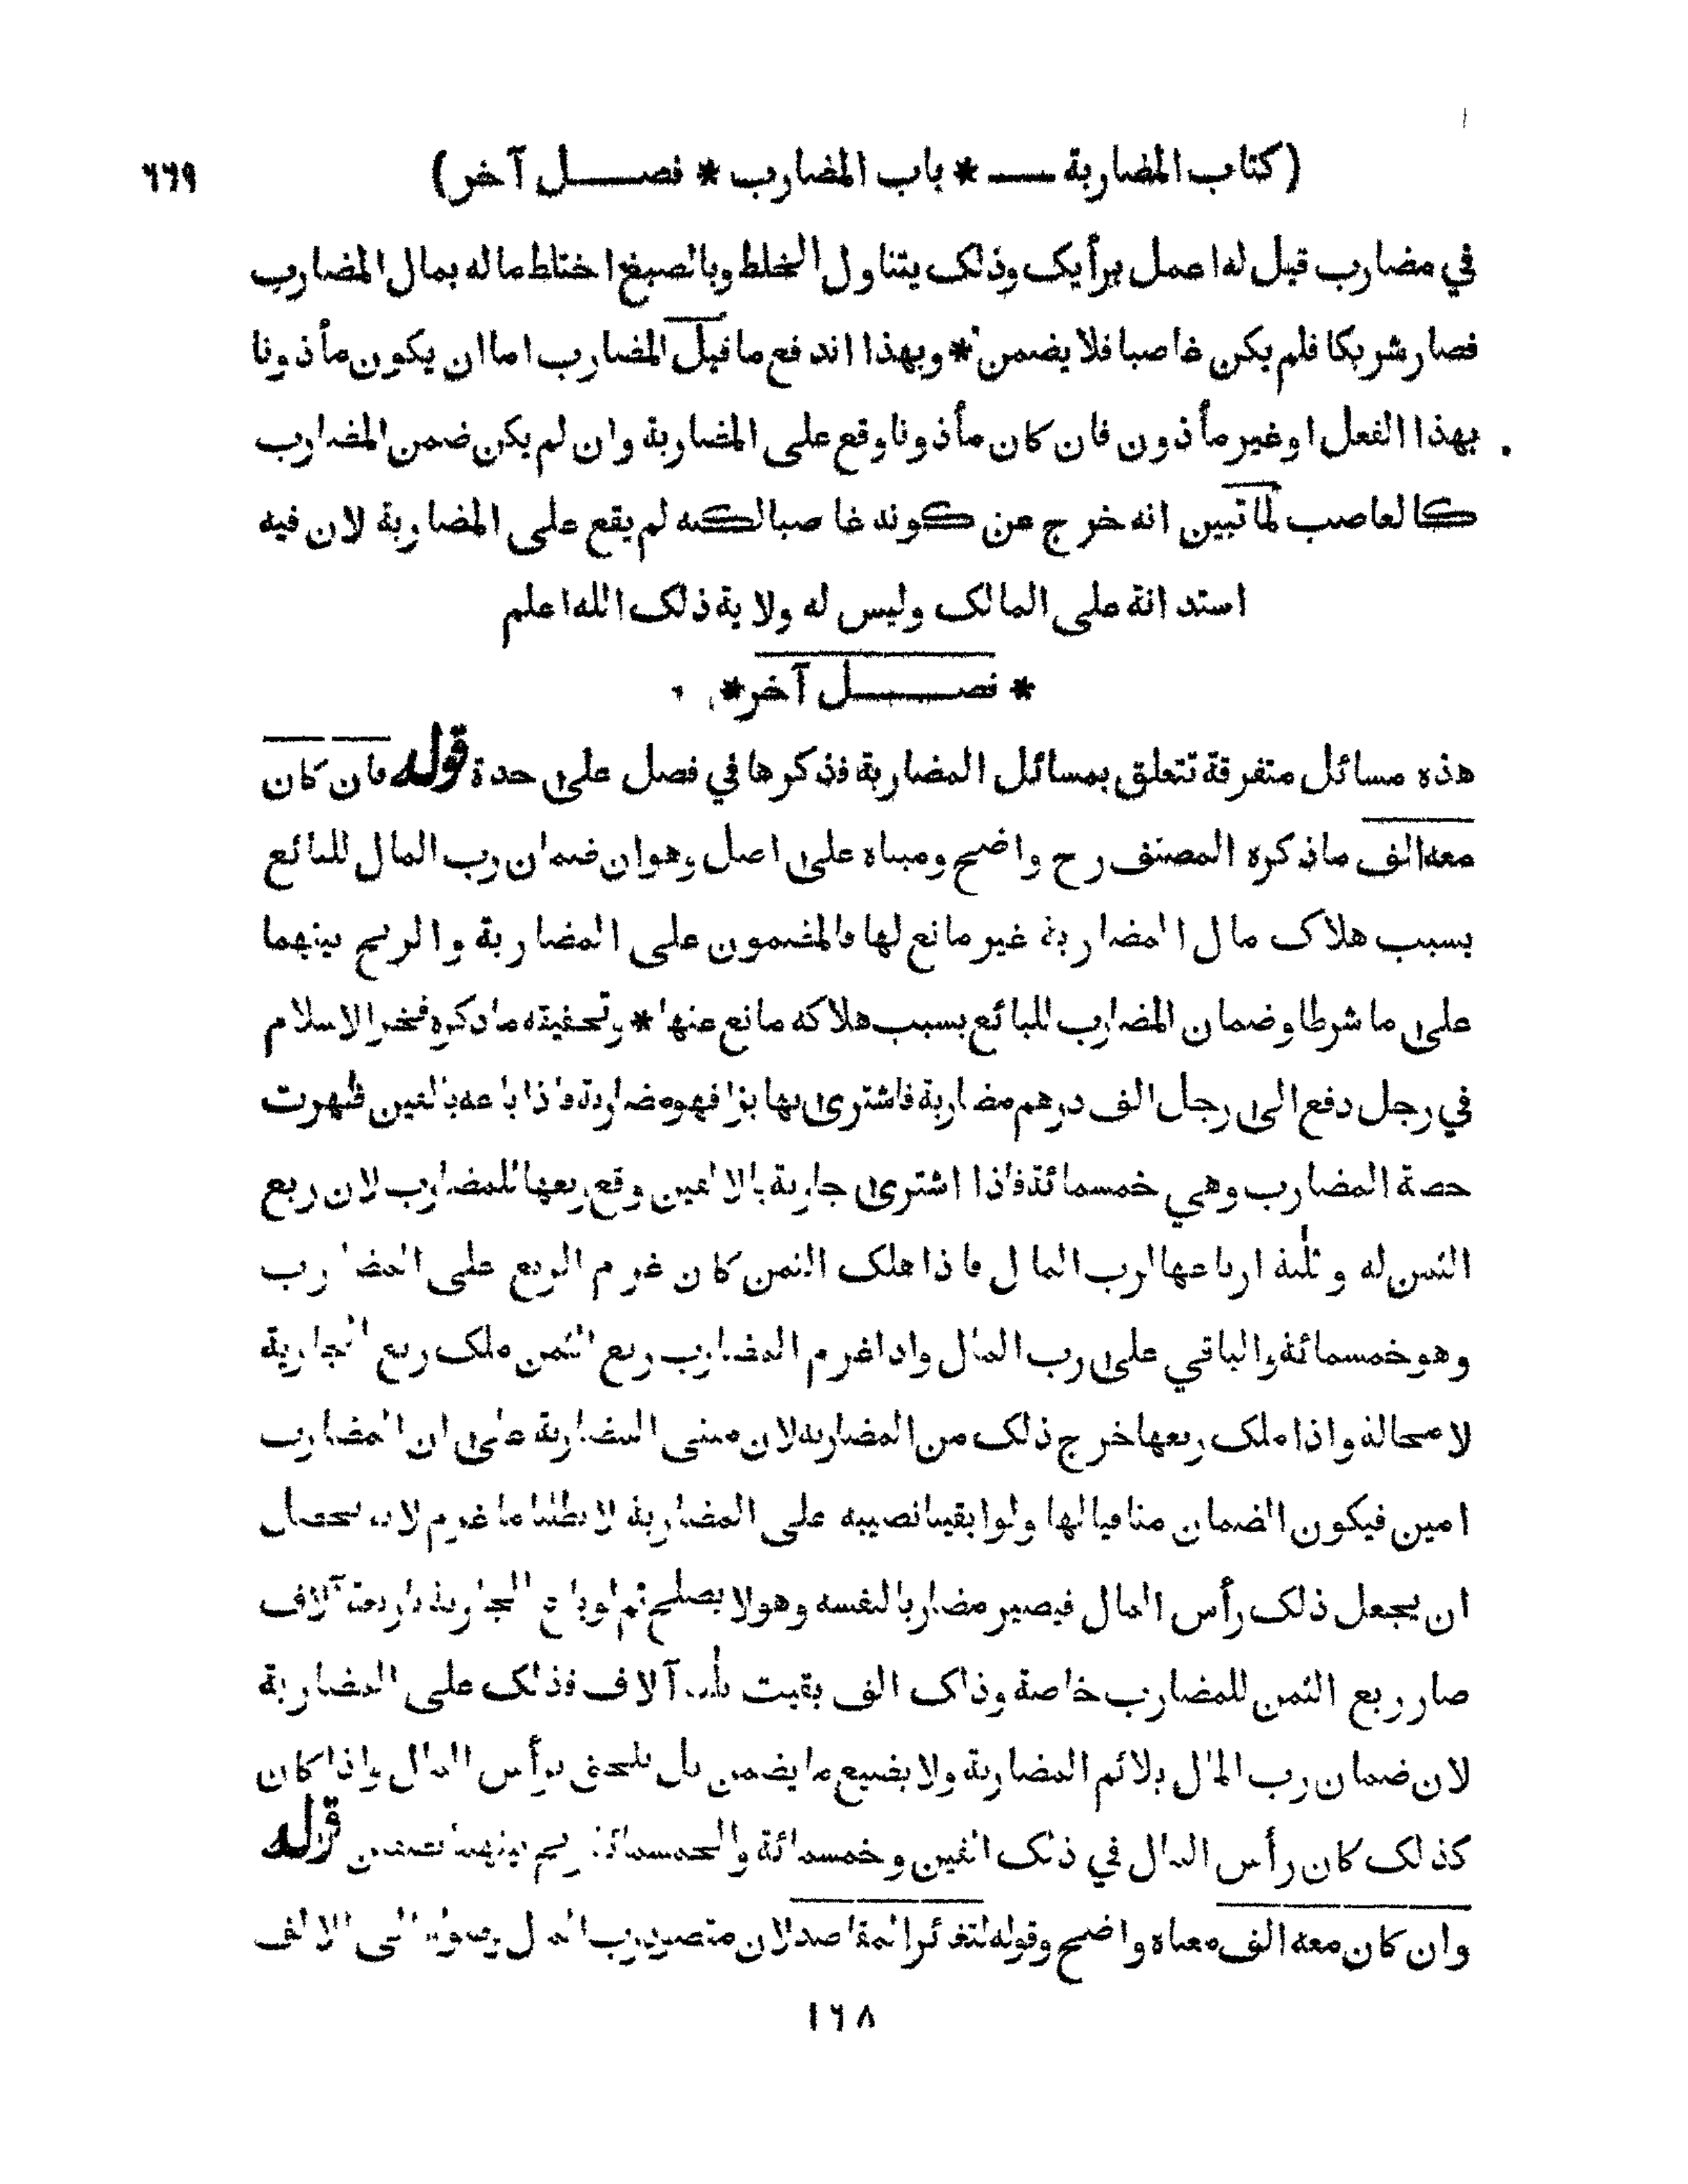 (كتاب المضاربة — * باب المضارب * فصل آخر) ٦٦٩
في مضارب قيل له اعمل برأيك وذلك يتناول الخلط وبالصبغ اختلط ماله بمال المضارب
فصار شريكا فلم يكن غاصبا فلا يضمن * وبهذا اندفع ما قيل المضارب اما ان يكون مأذونا
بهذا الفعل او غير مأذون فان كان مأذونا وقع على المضاربة وان لم يكن ضمن المضارب
كالغاصب لما تبين انه خرج عن كونه غاصبا لكنه لم يقع على المضاربة لان فيه
استدانة على المالك وليس له ولاية ذلك الله اعلم
* فصل آخر *
هذه مسائل متفرقة تتعلق بمسائل المضاربة فذكرها في فصل على حدة قوله فان كان
معه الف ماذكره المصنف رح واضح ومبناه على اصل وهو ان ضمان رب المال للبائع
بسبب هلاك مال المضاربة غير مانع لها فالمضمون على المضاربة والربح بينهما
على ما شرطا وضمان المضارب للبائع بسبب هلاكه مانع عنها * وتحقيقه ماذكره فخر الاسلام
في رجل دفع الى رجل الف درهم مضاربة فاشترى بها بزا فهو مضاربة فاذا باعه بالفين ظهرت
حصة المضارب وهي خمسمائة فاذا اشترى جارية بالالفين وقع ربعها للمضارب لان ربع
الثمن له وثلثة ارباعها لرب المال فاذا هلك الثمن كان غرم الربع على المضارب
وهو خمسمائة والباقي على رب المال واذا غرم المضارب ربع الثمن ملك ربع الجارية
لا محالة واذا ملك ربعها خرج ذلك من المضاربة لان مبنى المضاربة على ان المضارب
امين فيكون الضمان منافيا لها ولو ابقينا نصيبه على المضاربة لابطلنا ما غرم لانه يحصل
ان يجعل ذلك رأس المال فيصير مضاربا لنفسه وهو لا يصلح ثم لو باع الجارية باربعة آلاف
صار ربع الثمن للمضارب خاصة وذلك الف بقيت ثلثة آلاف فذلك على المضاربة
لان ضمان رب المال يلائم المضاربة ولا يضيع ما يضمن بل يلحق برأس المال واذا كان
كذلك كان رأس المال في ذلك الفين وخمسمائة والخمسمائة ربح بينهما نصفين قوله
وان كان معه الف معناه واضح وقوله لتغائر المقاصد لان مقصود رب المال وصوله الى الالف
١٦٨